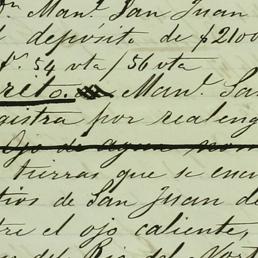 Man.l San Juan
deposito de $2100
54 vta/56 vta
Man.l Sa
gistra por realeng
Ojo de agua nom
tierras que se encu
tios de San Juan de
re el ojo caliente,
del Rio del Nort